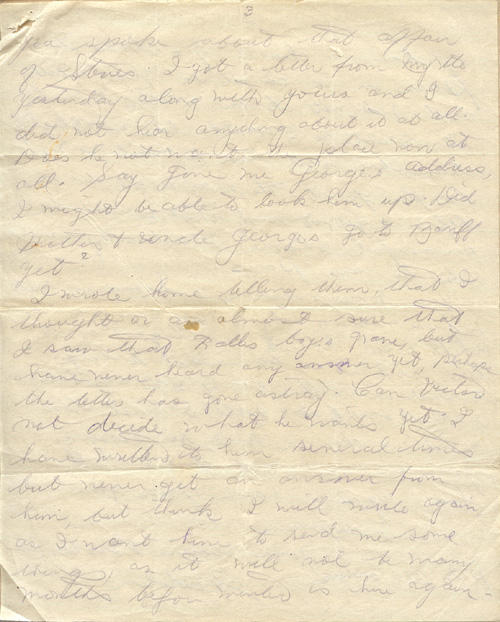 3
you spoke about that affair
of Steves. I got a letter from Myrtle
yesterday along with yours and I
did not hear anything about it at all.
Does he not want place now at
all. Say Give me Georges address,
I might be able to look him up. Did
& Uncle Georges go to Banff
yet?
I wrote home telling them, that I
thought or am almost sure that
I saw that boys grave, but
have never heard any answer yet, perhaps
the letter has gone astray. Can Victor
not decide what he wants yet. I
have written to him several times
but never get an answer from
him, but think I will write again
as I want him to send me some
things, as it will not be many
months before winter is here again-